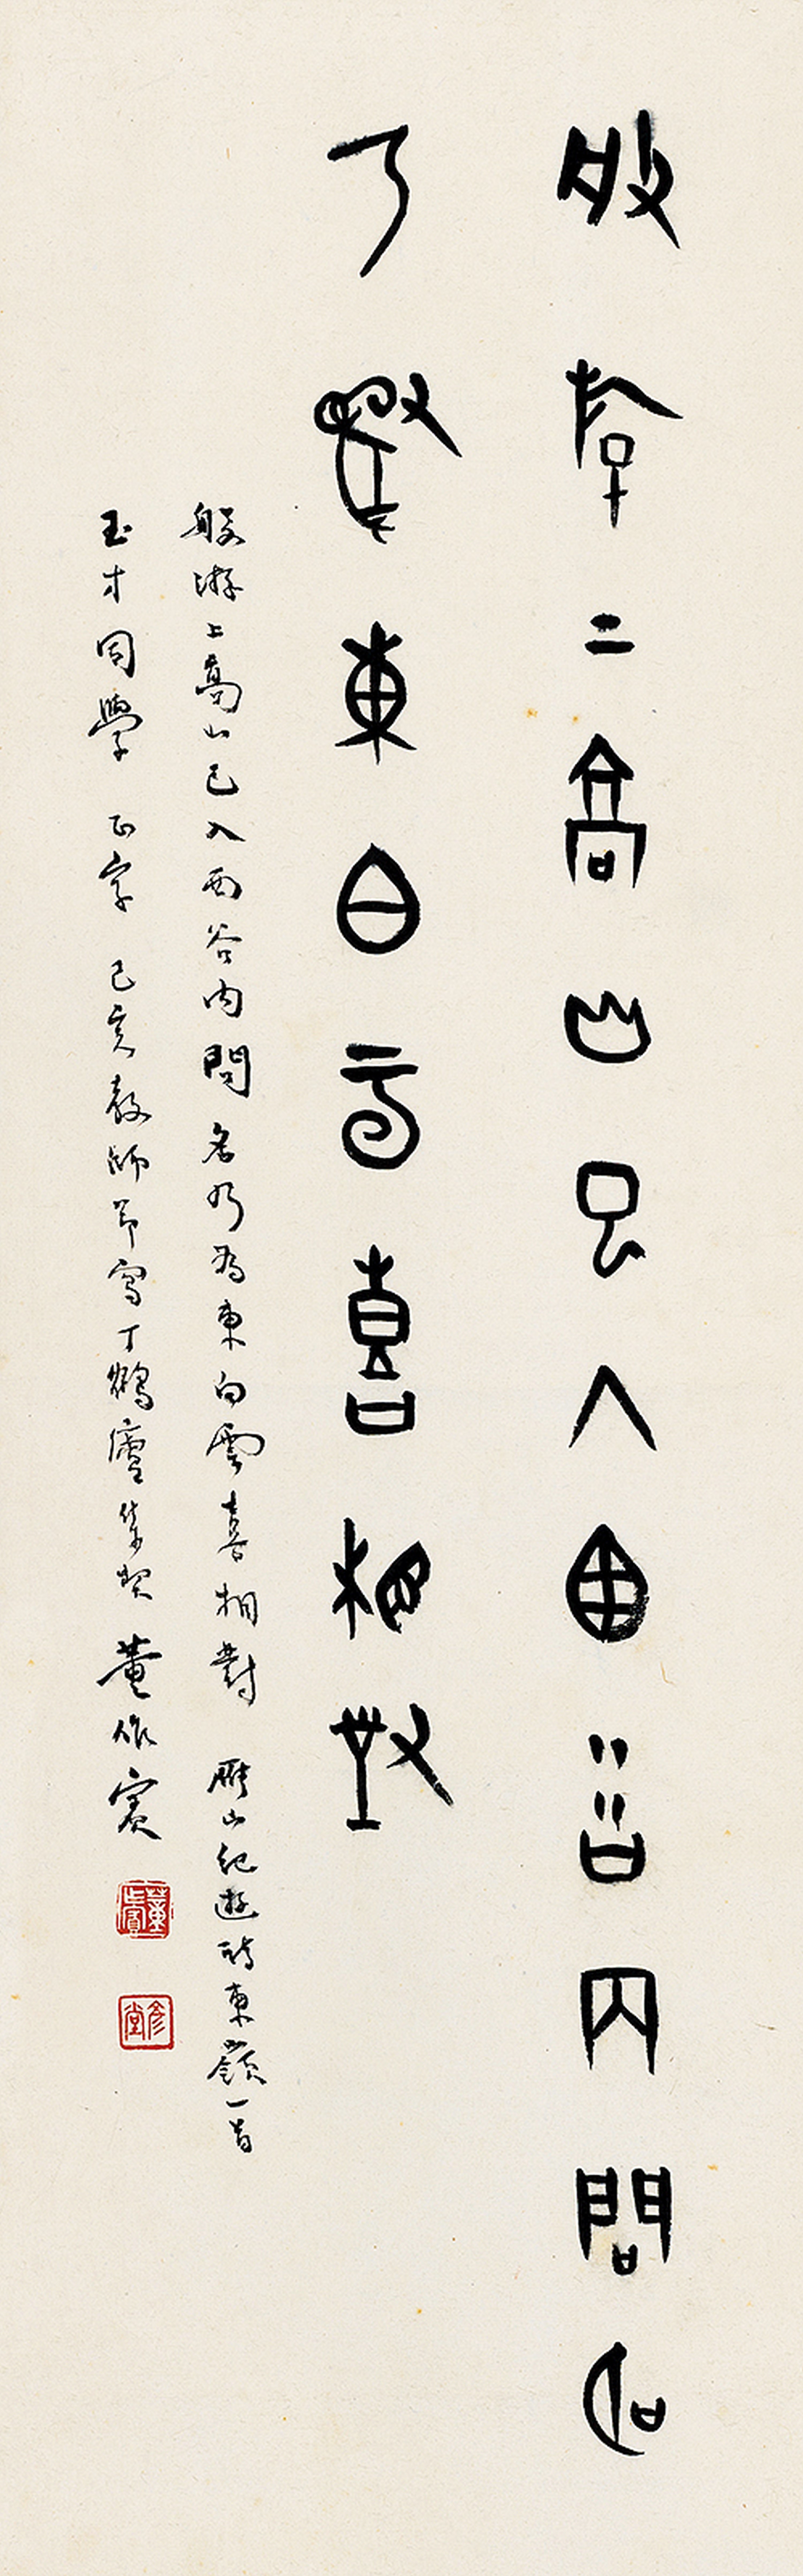 般游上高山已入西谷内問名
乃為東白雲喜相對
般游上高山已入西谷内問名乃為東白雲喜相對 雁山紀遊詩東嶺一首
玉才同學 正字 己亥教師節寫丁鶴廬集契 董作賓
董作賓
彥堂